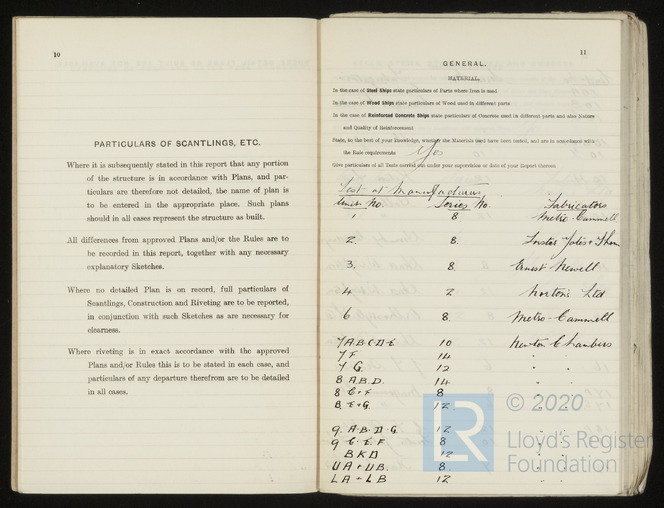 10
PARTICULARS OF SCANTLINGS, ETC.
Where it is subsequently stated in this report that any portion
of the structure is in accordance with Plans, and par-
ticulars are therefore not detailed, the name of plan is
to be entered in the appropriate place. Such plans
should in all cases represent the structure as built.
All differences from approved Plans and/or the Rules are to
be recorded in this report, together with any necessary
explanatory Sketches.
Where no detailed Plan is on record, full particulars of
Scantlings, Construction and Riveting are to be reported,
in conjunction with such Sketches as are necessary for
clearness.
Where riveting is in exact accordance with the approved
Plans and/or Rules this is to be stated in each case, and
particulars of any departure therefrom are to be detailed
in all cases.
11
GENERAL.
MATERIAL.
In the case of Steel Ships state particulars of Parts where Iron is used
In the case of Wood Ships state particulars of Wood used in different parts
In the case of Reinforced Concrete Ships state particulars of Concrete used in different parts and also Nature
and Quality of Reinforcement
State, to the best of your knowledge, whether the Materials used have been tested, and are in accordance with
the Rule requirements Yes
Give particulars of all Tests carried out under your supervision or date of your Report thereon
List of Manufacturers
Unit No. Series No. Fabricators
1 8 Metro-Cammell
2. 8. Forster Yates & Thom
3. 8. Ernest Newell
4 2 Norton's Ltd
6 8. Metro-Cammell
7 A.B.C.D.E 10 Newton Chambers
7 F 14 " "
7 G. 12 " "
8 A.B.D. 14 " "
8 C+F 8 " "
8. E+G. 12 " "
9. A.B.D.G. 12 " "
9 C.E.F 8 " "
BKD 12 " "
UA + UB. 8. " "
LA + LB 12 " "
© 2020
LR
Lloyd's Register
Foundation